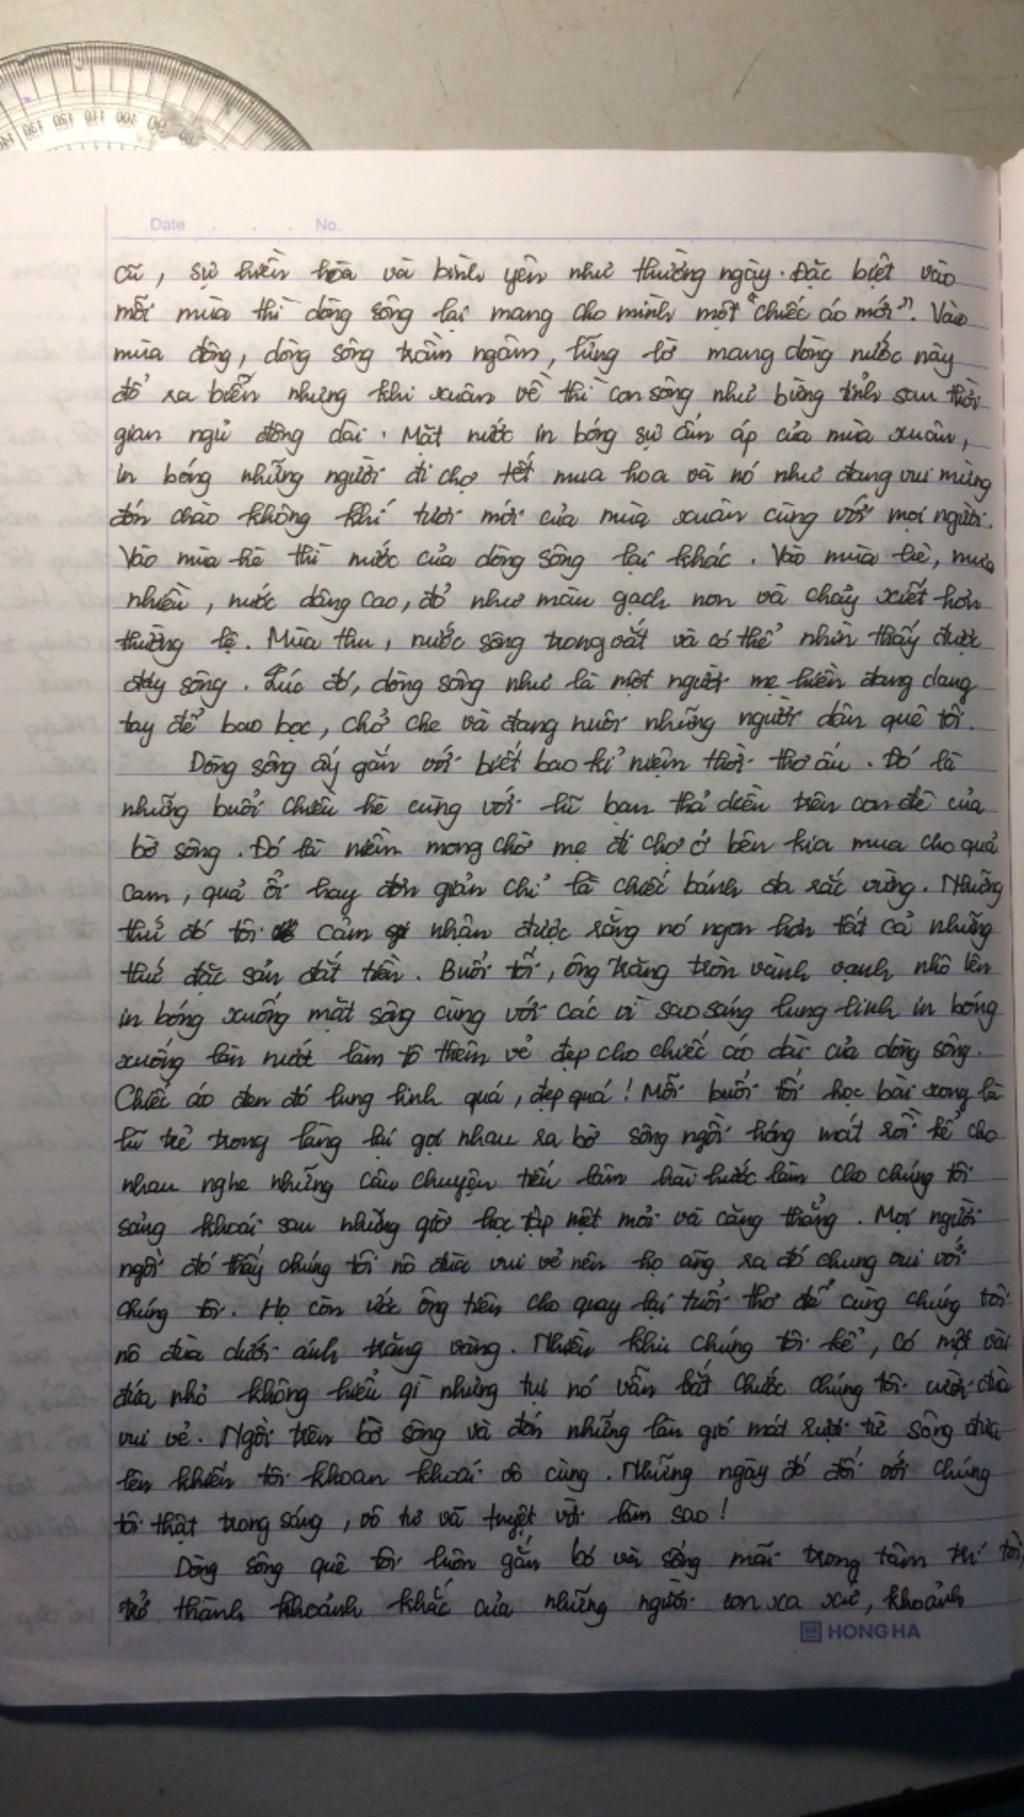 Date . . . No.
cũ, sự hiền hòa và bình yên như thường ngày. Đặc biệt vào
mỗi mùa thì dòng sông lại mang cho mình một "chiếc áo mới". Vào
mùa đông, dòng sông trầm ngâm, lững lờ mang dòng nước này
đổ ra biển nhưng khi xuân về thì con sông như bừng tỉnh sau thời
gian ngủ đông dài. Mặt nước in bóng sự ấm áp của mùa xuân,
in bóng những người đi chợ tết mua hoa và nó như đang vui mừng
đón chào không khí tươi mới của mùa xuân cùng với mọi người.
Vào mùa hè thì nước của dòng sông lại khác. Vào mùa hè, mưa
nhiều, nước dâng cao, đỏ như màu gạch non và chảy xiết hơn
thường lệ. Mùa thu, nước sông trong vắt và có thể nhìn thấy được
đáy sông. Lúc đó, dòng sông như là một người mẹ hiền đang dang
tay để bao bọc, chở che và đang nuôi những người dân quê tôi.
Dòng sông ấy gắn với biết bao kỉ niệm thời thơ ấu. Đó là
những buổi chiều hè cùng với lũ bạn thả diều trên con đê của
bờ sông. Đó là niềm mong chờ mẹ đi chợ ở bên kia mua cho quả
cam, quả ổi hay đơn giản chỉ là chiếc bánh đa sắc vừng. Những
thứ đó tôi cảm nhận được rằng nó ngon hơn tất cả những
thứ đặc sản đắt tiền. Buổi tối, ông trăng tròn vành vạnh nhô lên
in bóng xuống mặt sông cùng với các vì sao sáng lung linh in bóng
xuống làn nước làm tô thêm vẻ đẹp cho chiếc áo dài của dòng sông.
Chiếc áo đen đó lung linh quá, đẹp quá! Mỗi buổi tối học bài xong là
lũ trẻ trong làng lại gọi nhau ra bờ sông ngồi hóng mát rồi kể cho
nhau nghe những câu chuyện tiếu lâm hài hước làm cho chúng tôi
sảng khoái sau những giờ học tập mệt mỏi và căng thẳng. Mọi người
ngồi đó thấy chúng tôi nô đùa vui vẻ nên họ cũng ra đó chung vui với
chúng tôi. Họ còn ước ông tiên cho quay lại tuổi thơ để cùng chúng tôi
nô đùa dưới ánh trăng vàng. Nhiều khi chúng tôi kể, có một vài
đứa nhỏ không hiểu gì nhưng tụi nó vẫn bắt chước chúng tôi cười đùa
vui vẻ. Ngồi trên bờ sông và đón những làn gió mát rượi từ sông đưa
lên khiến tôi khoan khoái vô cùng. Những ngày đó đối với chúng
tôi thật trong sáng, vô tư và tuyệt vời làm sao!
Dòng sông quê tôi luôn gắn bó và sống mãi trong tâm trí tôi,
trở thành khoảnh khắc của những người con xa xứ, khoảnh
HONG HA